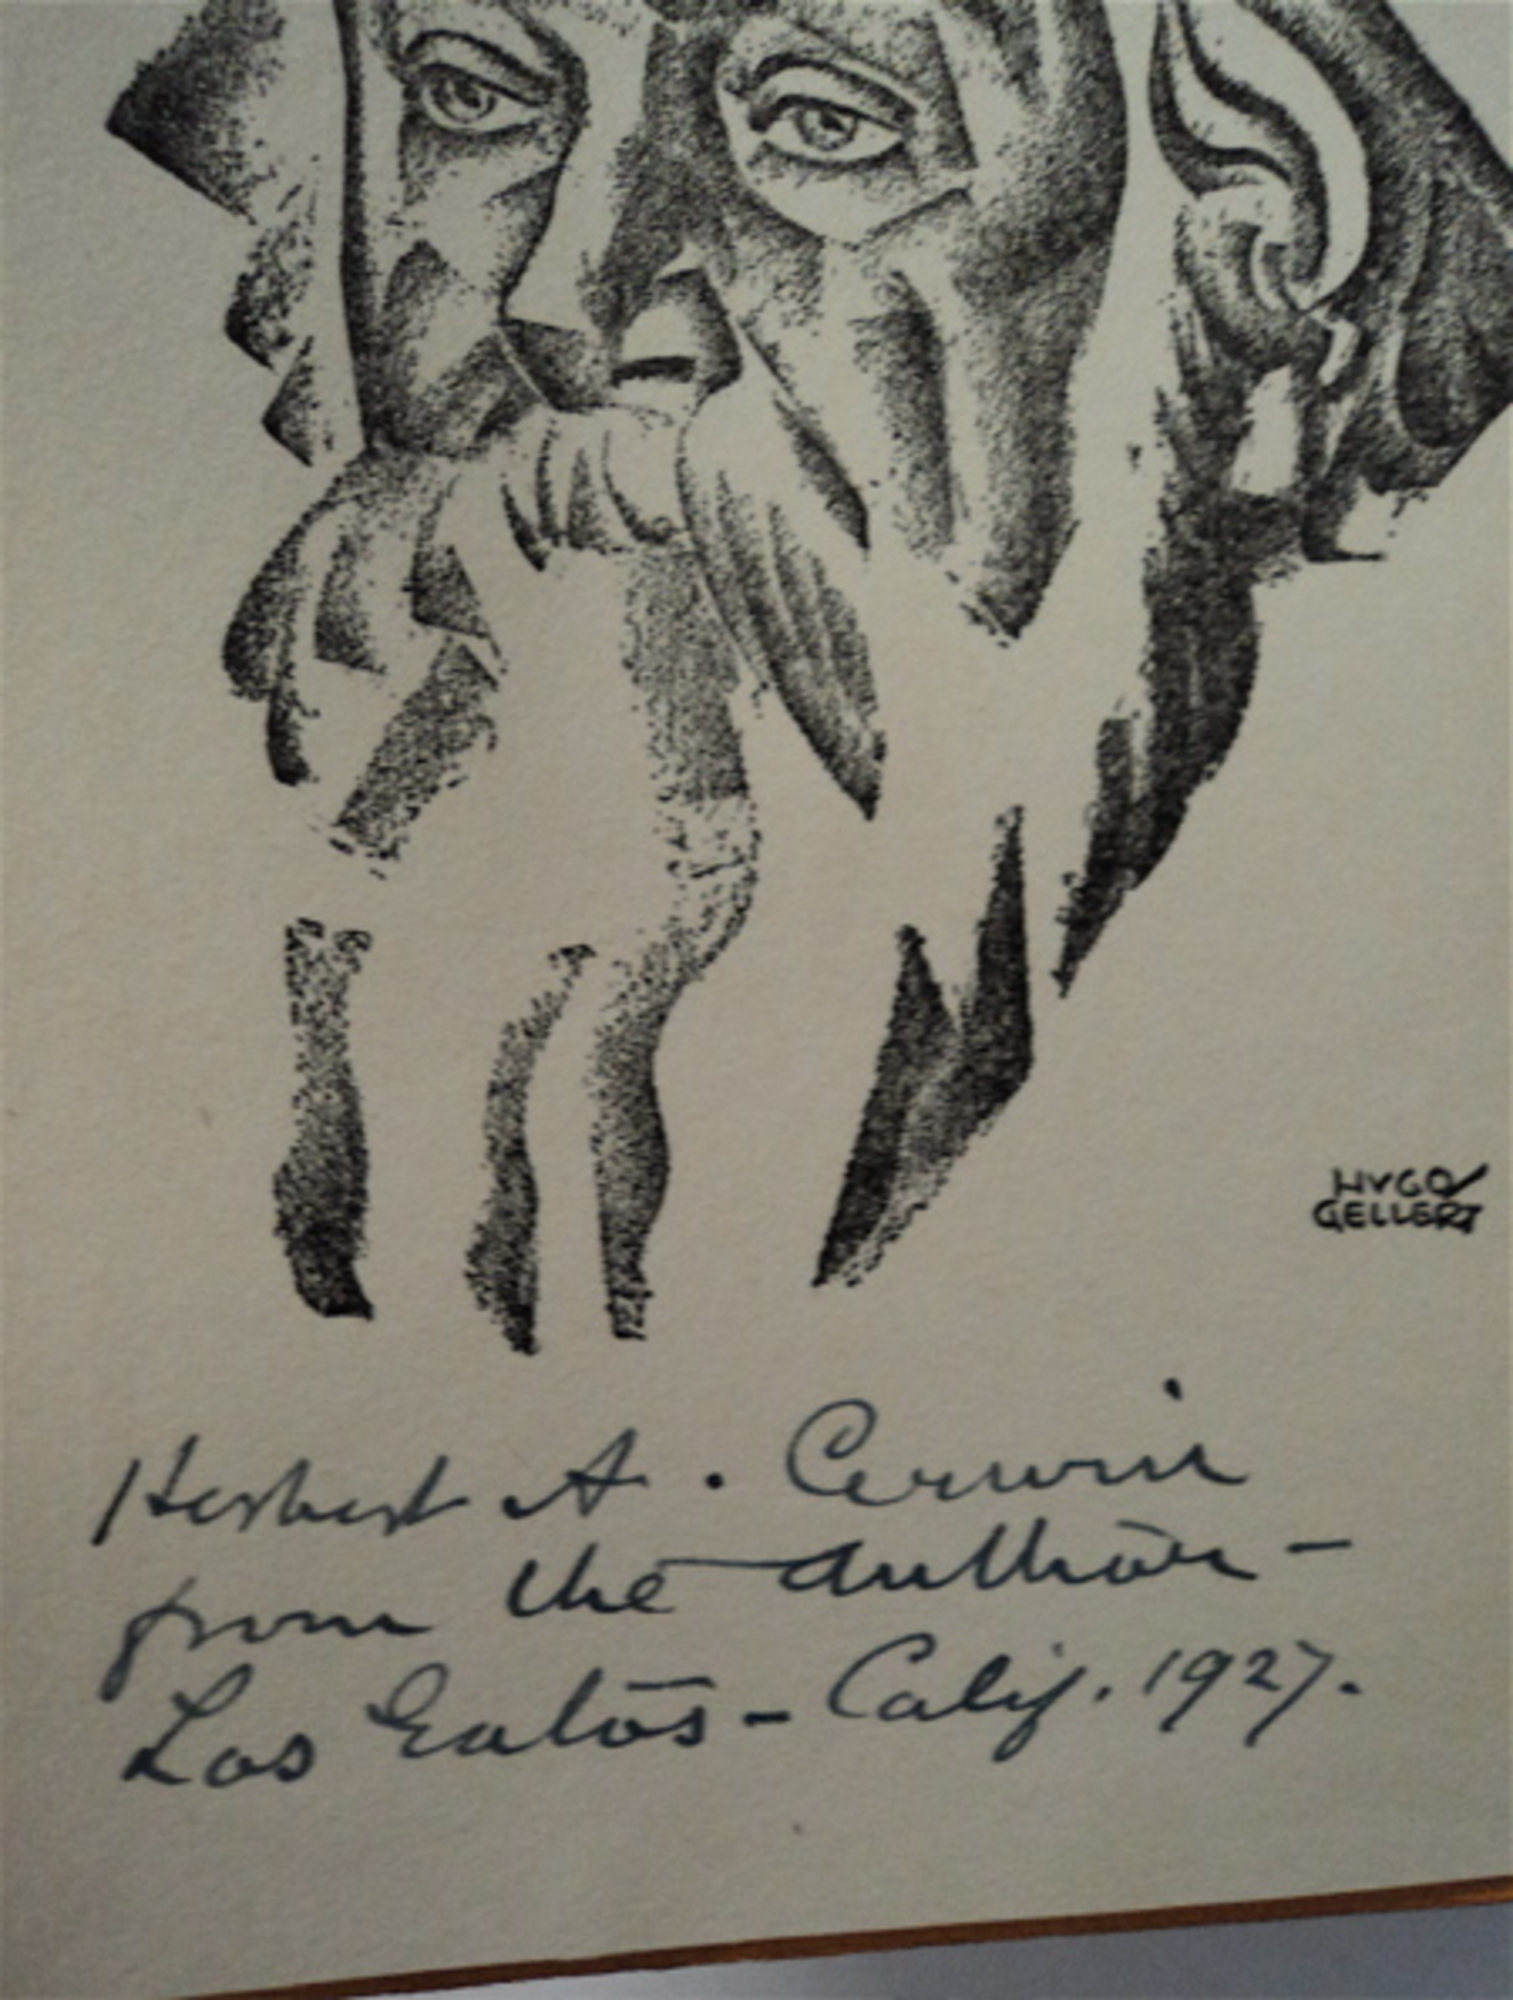 HVGO
GELLERT
Herbert A. Cerwin
from the author –
Los Gatos – Calif. 1927.